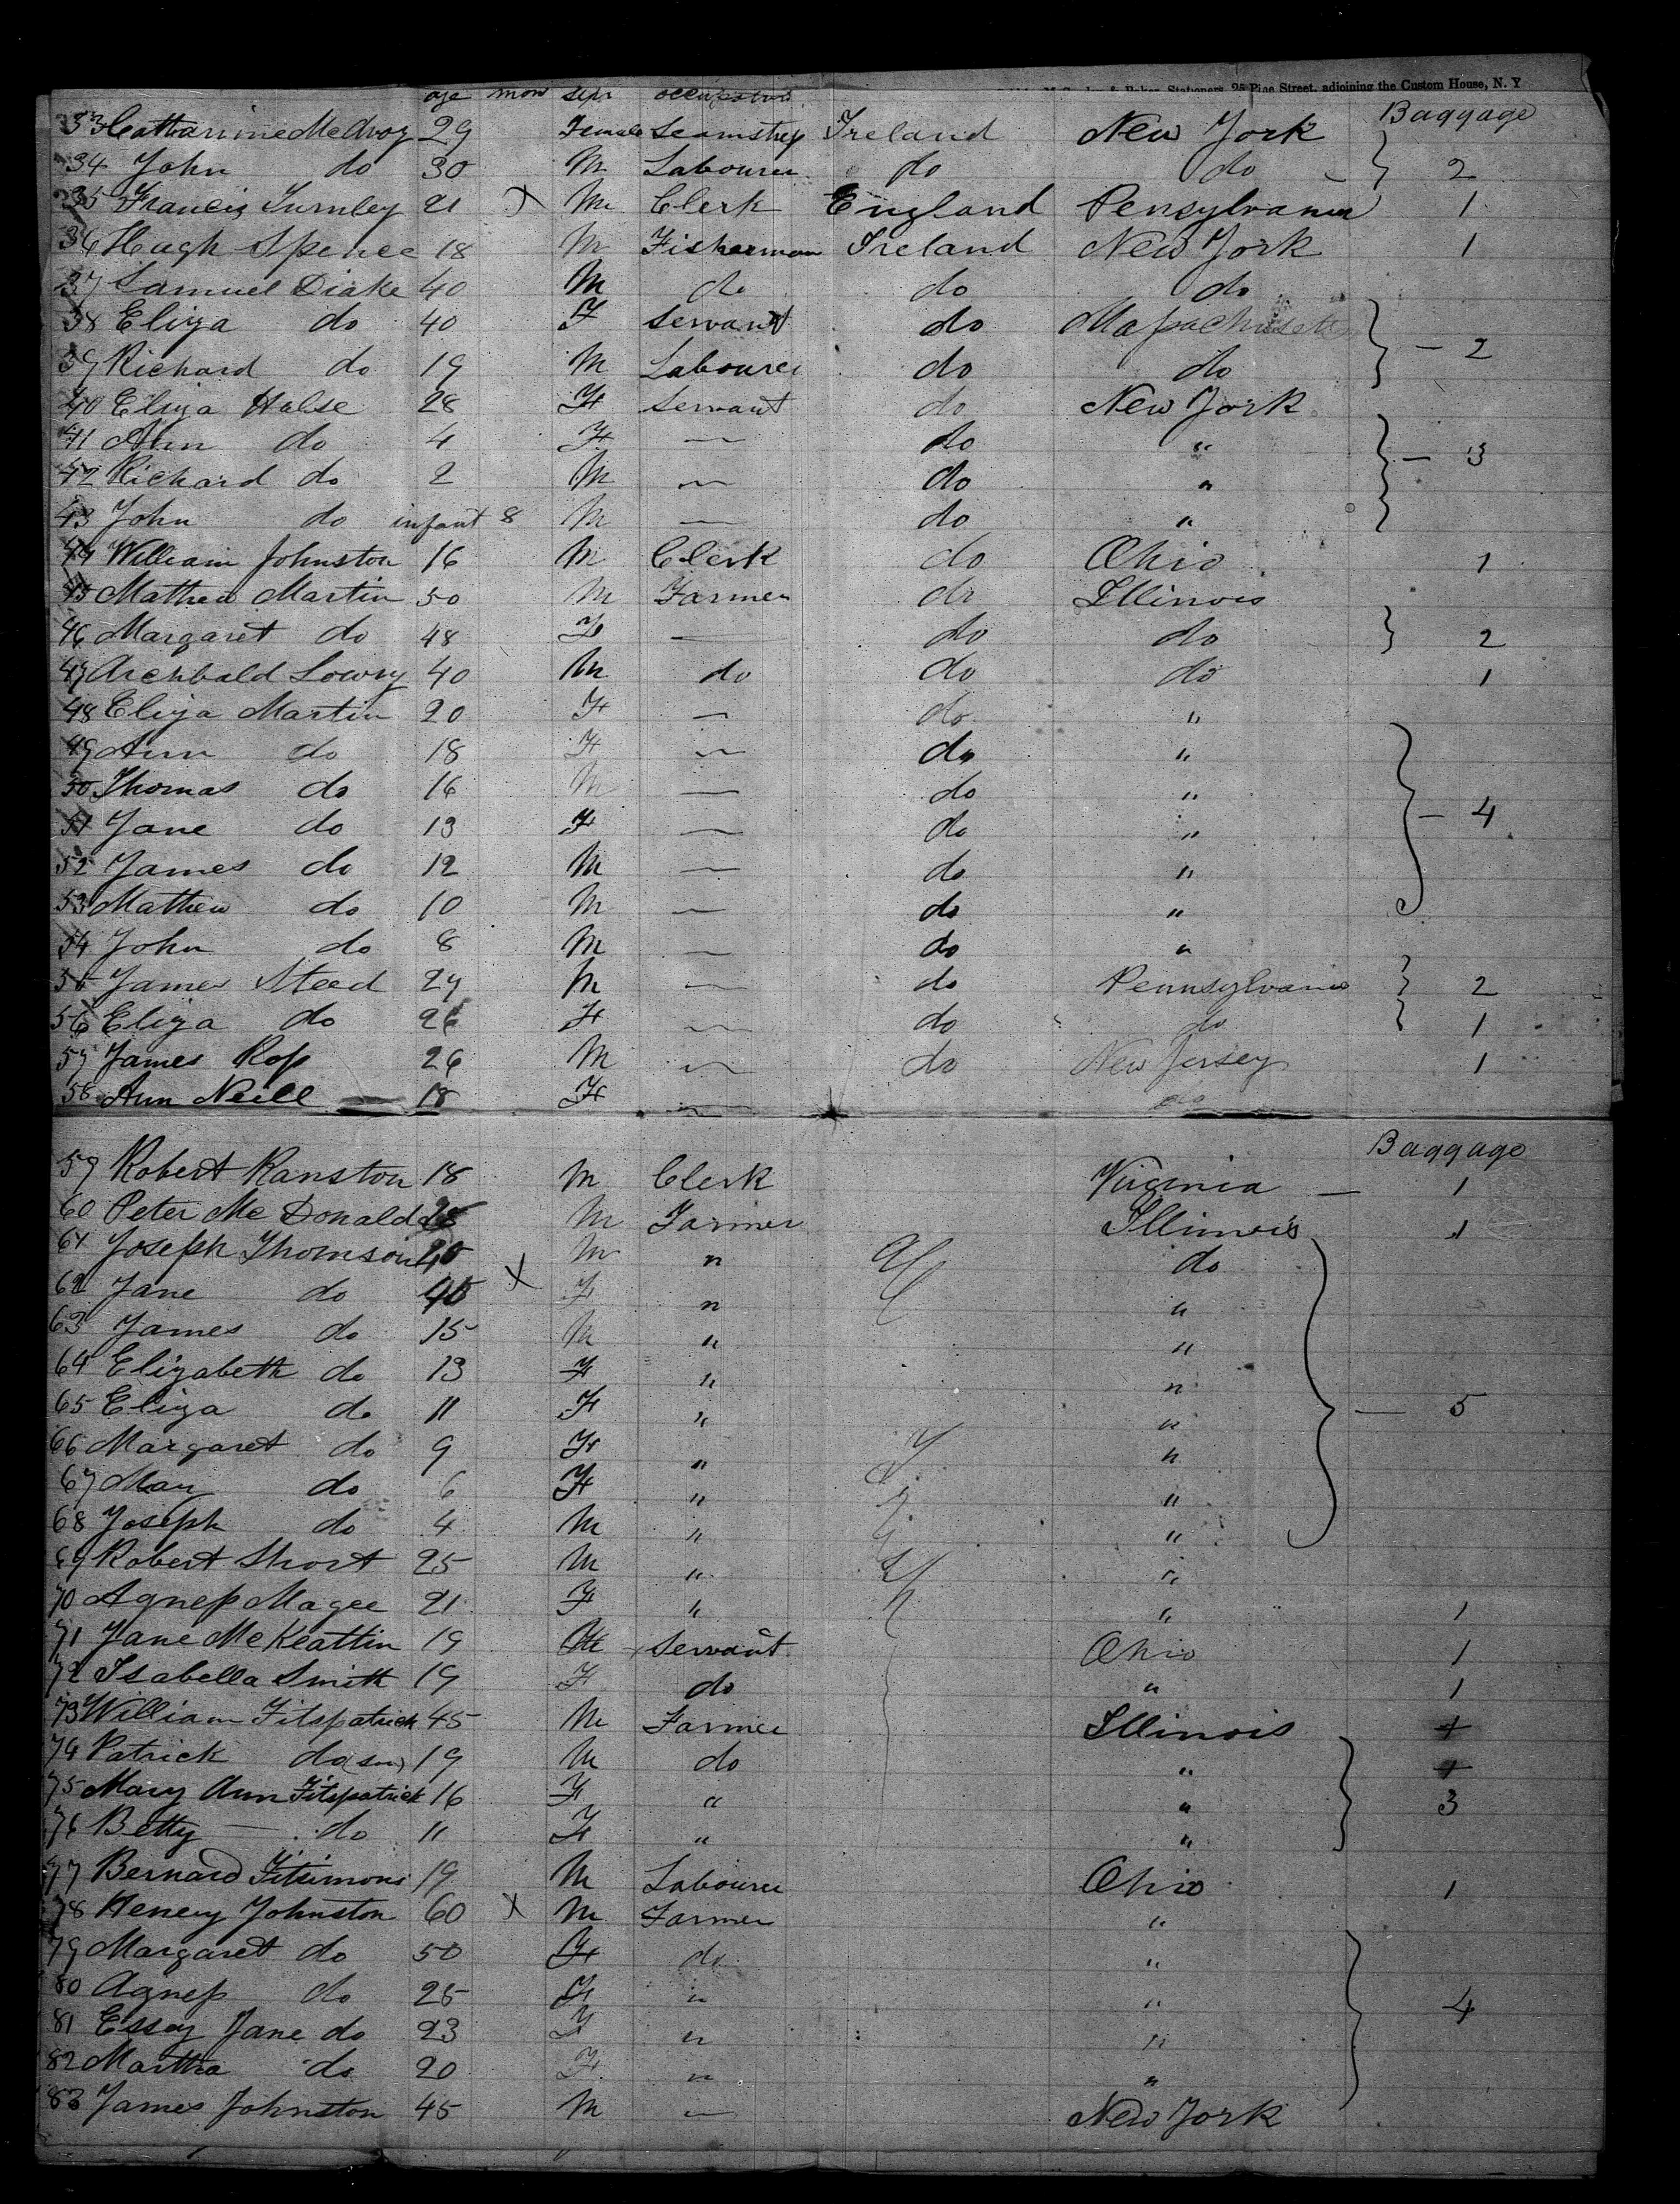 & Baker, Stationers, 25 Pine Street, adjoining the Custom House, N. Y
age mons sex occupation Baggage
33 Catharine McAvoy 29 Female Seamstress Ireland New York
34 John do 30 M Labourer do do 2
35 Francis Turnley 21 X M Clerk England Pensylvania 1
36 Hugh Spence 18 M Fisherman Ireland New York 1
37 Samuel Diake 40 M do do do
38 Eliza do 40 F Servant do Massachusetts
39 Richard do 19 M Labourer do do — 2
40 Eliza Halse 28 F Servant do New York
41 Ann do 4 F — do "
42 Richard do 2 M — do " — 3
43 John do infant 8 M — do "
44 William Johnston 16 M Clerk do Ohio 1
45 Mathew Martin 50 M Farmer do Illinois
46 Margaret do 48 F — do do 2
47 Archbald Lowry 40 M do do do 1
48 Eliza Martin 20 F — do "
49 Ann do 18 F — do "
50 Thomas do 16 M — do "
51 Jane do 13 F — do " — 4
52 James do 12 M — do "
53 Mathew do 10 M — do "
54 John do 8 M — do "
55 James Steed 29 M — do Pennsylvania 2
56 Eliza do 26 F — do do 1
57 James Ross 26 M — do New Jersey 1
58 Ann Neill 18 F — do
Baggage
59 Robert Ranston 18 M Clerk Virginia — 1
60 Peter McDonald 25 M Farmer Illinois 1
61 Joseph Thomson 40 M " do
62 Jane do 40 X F " "
63 James do 15 M " "
64 Elizabeth do 13 F " "
65 Eliza do 11 F " " — 5
66 Margaret do 9 F " "
67 Mary do 6 F " "
68 Joseph do 4 M " "
69 Robert Short 25 M " "
70 Agness Magee 21 F " " 1
71 Jane McKeattin 19 F Servant Ohio 1
72 Isabella Smith 19 F do " 1
73 William Fitspatrick 45 M Farmer Illinois 1
74 Patrick do (son) 19 M do " 1
75 Mary Ann Fitspatrick 16 F " " 3
76 Betty — do 11 F " "
77 Bernard Fitsimons 19 M Labourer Ohio 1
78 Henery Johnston 60 X M Farmer "
79 Margaret do 50 F do "
80 Agness do 25 F " " 4
81 Essey Jane do 23 F " "
82 Martha do 20 F " "
83 James Johnston 45 M — New York